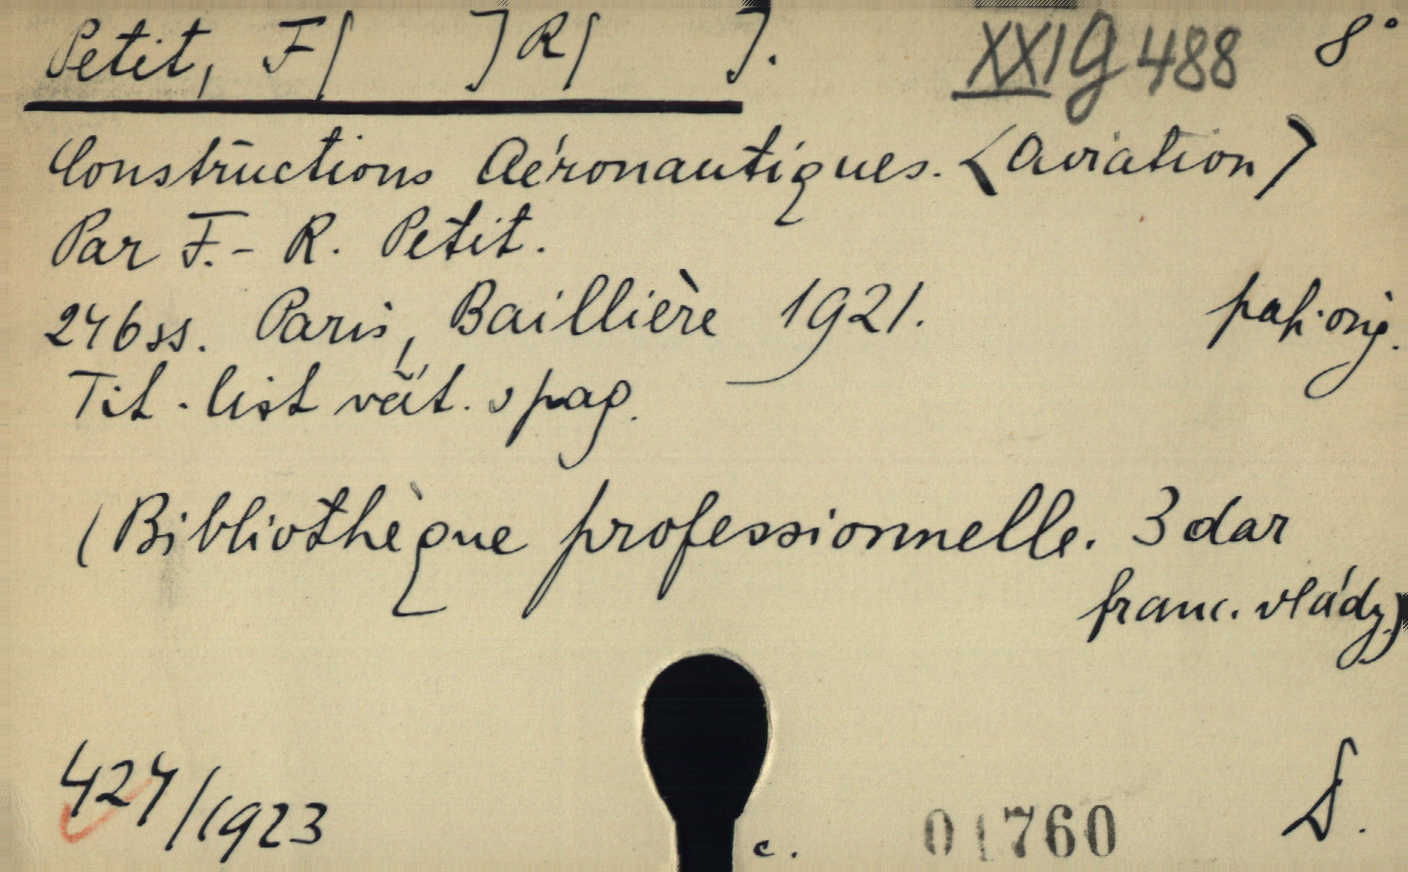 Petit, F[ ]R[ ]. XXI G 488 8°
Constructions Aéronautiques. <Aviation>
Par F.- R. Petit.
246 ss. Paris, Baillière 1921. pap. orig.
Tit. list včít. v pag.
(Bibliothèque professionnelle. 3 dar
franc. vlády)
427/1923
c. 01760